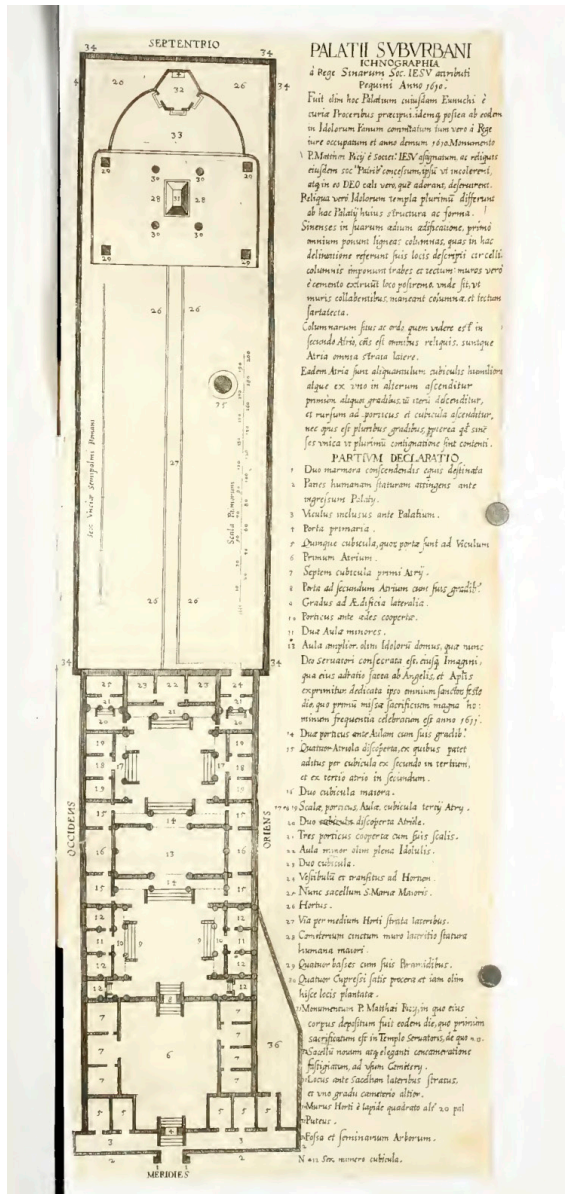 SEPTENTRIO
PALATII SVBVRBANI
ICHNOGRAPHIA
à Rege Sinarum Soc. IESV attributi
Pequini Anno 1610.
Fuit olim hoc Palatium cuiusdam Eunuchi è
curiæ Proceribus præcipui, idemq postea ab eodem
in Idolorum Fanum commutatum tum vero à Rege
iure occupatum et anno demum 1610. Monumento
P. Matthæi Ricij è Societ. IESV assignatum, ac reliquis
eiusdem soc. Patrib' concessum, ipsū vt incolerent,
atq in eo DEO cæli vero, quē adorant, deseruirent.
Reliqua verò Idolorum templa plurimū differunt
ab hac Palatij huius structura ac forma.
Sinenses in suarum ædium ædificatione, primò
omnium ponunt ligneas columnas, quas in hac
delineatione referunt suis locis descripti circelli.
columnis imponunt trabes et tectum: muros verò
è cemento extruūt loco postremo, vnde fit, vt
muris collabentibus, maneant columnæ, et tectum
sartatecta.
Columnarum situs ac ordo quem videre est in
secundo Atrio, est omnibus reliquis, suntque
Atria omnia strata latere.
Eadem Atria sunt aliquantulum cubiculis humiliora
atque ex vno in alterum ascenditur
primūm aliquot gradibus, tū iterū descenditur,
et rursum ad porticus et cubicula ascenditur,
nec opus est pluribus gradibus, pp̄terea qd sinē
ses vnica vt plurimū contignatione sint contenti.
PARTIVM DECLARATIO
1 Duo marmora conscendendis equis destinata
2 Panes humanam staturam attingens ante
ingressum Palatij.
3 Viculus inclusus ante Palatium.
4 Porta primaria.
5 Quinque cubicula, quor portæ sunt ad Viculum
6 Primum Atrium.
7 Septem cubicula primi Atrij.
8 Porta ad secundum Atrium cum suis gradib'.
9 Gradus ad Ædificia lateralia.
10 Porticus ante ædes coopertæ.
11 Duæ Aulæ minores.
12
13 Aula amplior, olim Idolorū domus, quæ nunc
Deo seruatori consecrata est, eiusq Imagini,
quæ eius adstatis facea ab Angelis, et Aplis
exprimitur, dedicata ipso omnium sanctor̄ festo
die, quo primū missæ sacrificium magna ho:
minum frequentia celebratum est anno 1611.
14 Duæ porticus ante Aulam cum suis gradib'.
15 Quatuor Atriola discoperta, ex quibus patet
aditus per cubicula ex secundo in tertium,
et ex tertio atrio in secundum.
16 Duo cubicula maiora.
17 18 19 Scalæ, porticus, Aulæ, cubicula tertij Atrij.
20 Duo discoperta Atriola.
21 Tres porticus coopertæ cum suis scalis.
22 Aula minor olim plena Idolulis.
23 Duo cubicula.
24 Vestibulū et transitus ad Hortum.
25 Nunc sacellum S. Mariæ Maioris.
26 Hortus.
27 Via per medium Horti strata lateribus.
28 Cœmeterium cinctum muro lateritio statura
humana maiori.
29 Quatuor basses cum suis Piramidibus.
30 Quatuor Cupressi satis proceræ et iam olim
hisce locis plantatæ.
31 Monumentum P. Matthæi Ricij, in quo eius
corpus depositum fuit eodem die, quo primùm
sacrificatum est in Templo Seruatoris, de quo n.
Sacellū nouum atq eleganti concameratione
fastigiatum, ad vsum Cœmetery.
Locus ante Sacellum lateribus stratus,
et vno gradu cœmeterio altior.
Murus Horti è lapide quadrato alt' 20 pal
Puteus.
Fossa et seminarium Arborum.
N
numero cubicula.
Sex Vnciæ Semipalmi Romani
Scala Palmorum
OCCIDENS
ORIENS
MERIDIES